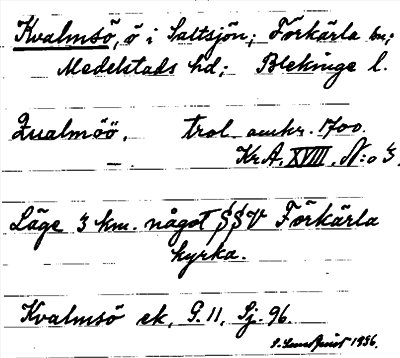 Kvalmsö, ö i Saltsjön; Förkärla sn;
Medelstads hd; Blekinge l.
Qualmöö. trol. omkr. 1700.
Kr.A. XVIII. N:o 3.
Läge 3 km. något SSV Förkärla
kyrka.
Kvalmsö ek. G. 11, Sj. 96.
1936.